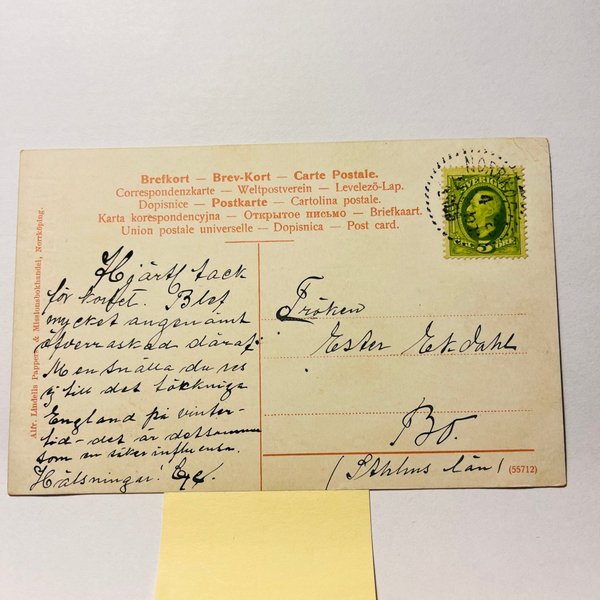 Brefkort — Brev-Kort — Carte Postale.
Correspondenzkarte — Weltpostverein — Levelező-Lap.
Dopisnice — Postkarte — Cartolina postale.
Karta korespondencyjna — Открытое письмо — Briefkaart.
Union postale universelle — Dopisnica — Post card.
SVERIGE
5 ÖRE
Alfr. Lindells Pappers- & Missionsbokhandel, Norrköping.
Hjärtl tack
för kortet. Blef
mycket angenämt
öfverraskad däraf.
Men snälla du res
ej till det töckniga
England på vinter-
tid - det är detsamma
som en siker influensa.
Hälsningar!
Fröken
Ester Ekdahl
Bo.
(Sthlms län)
(55712)